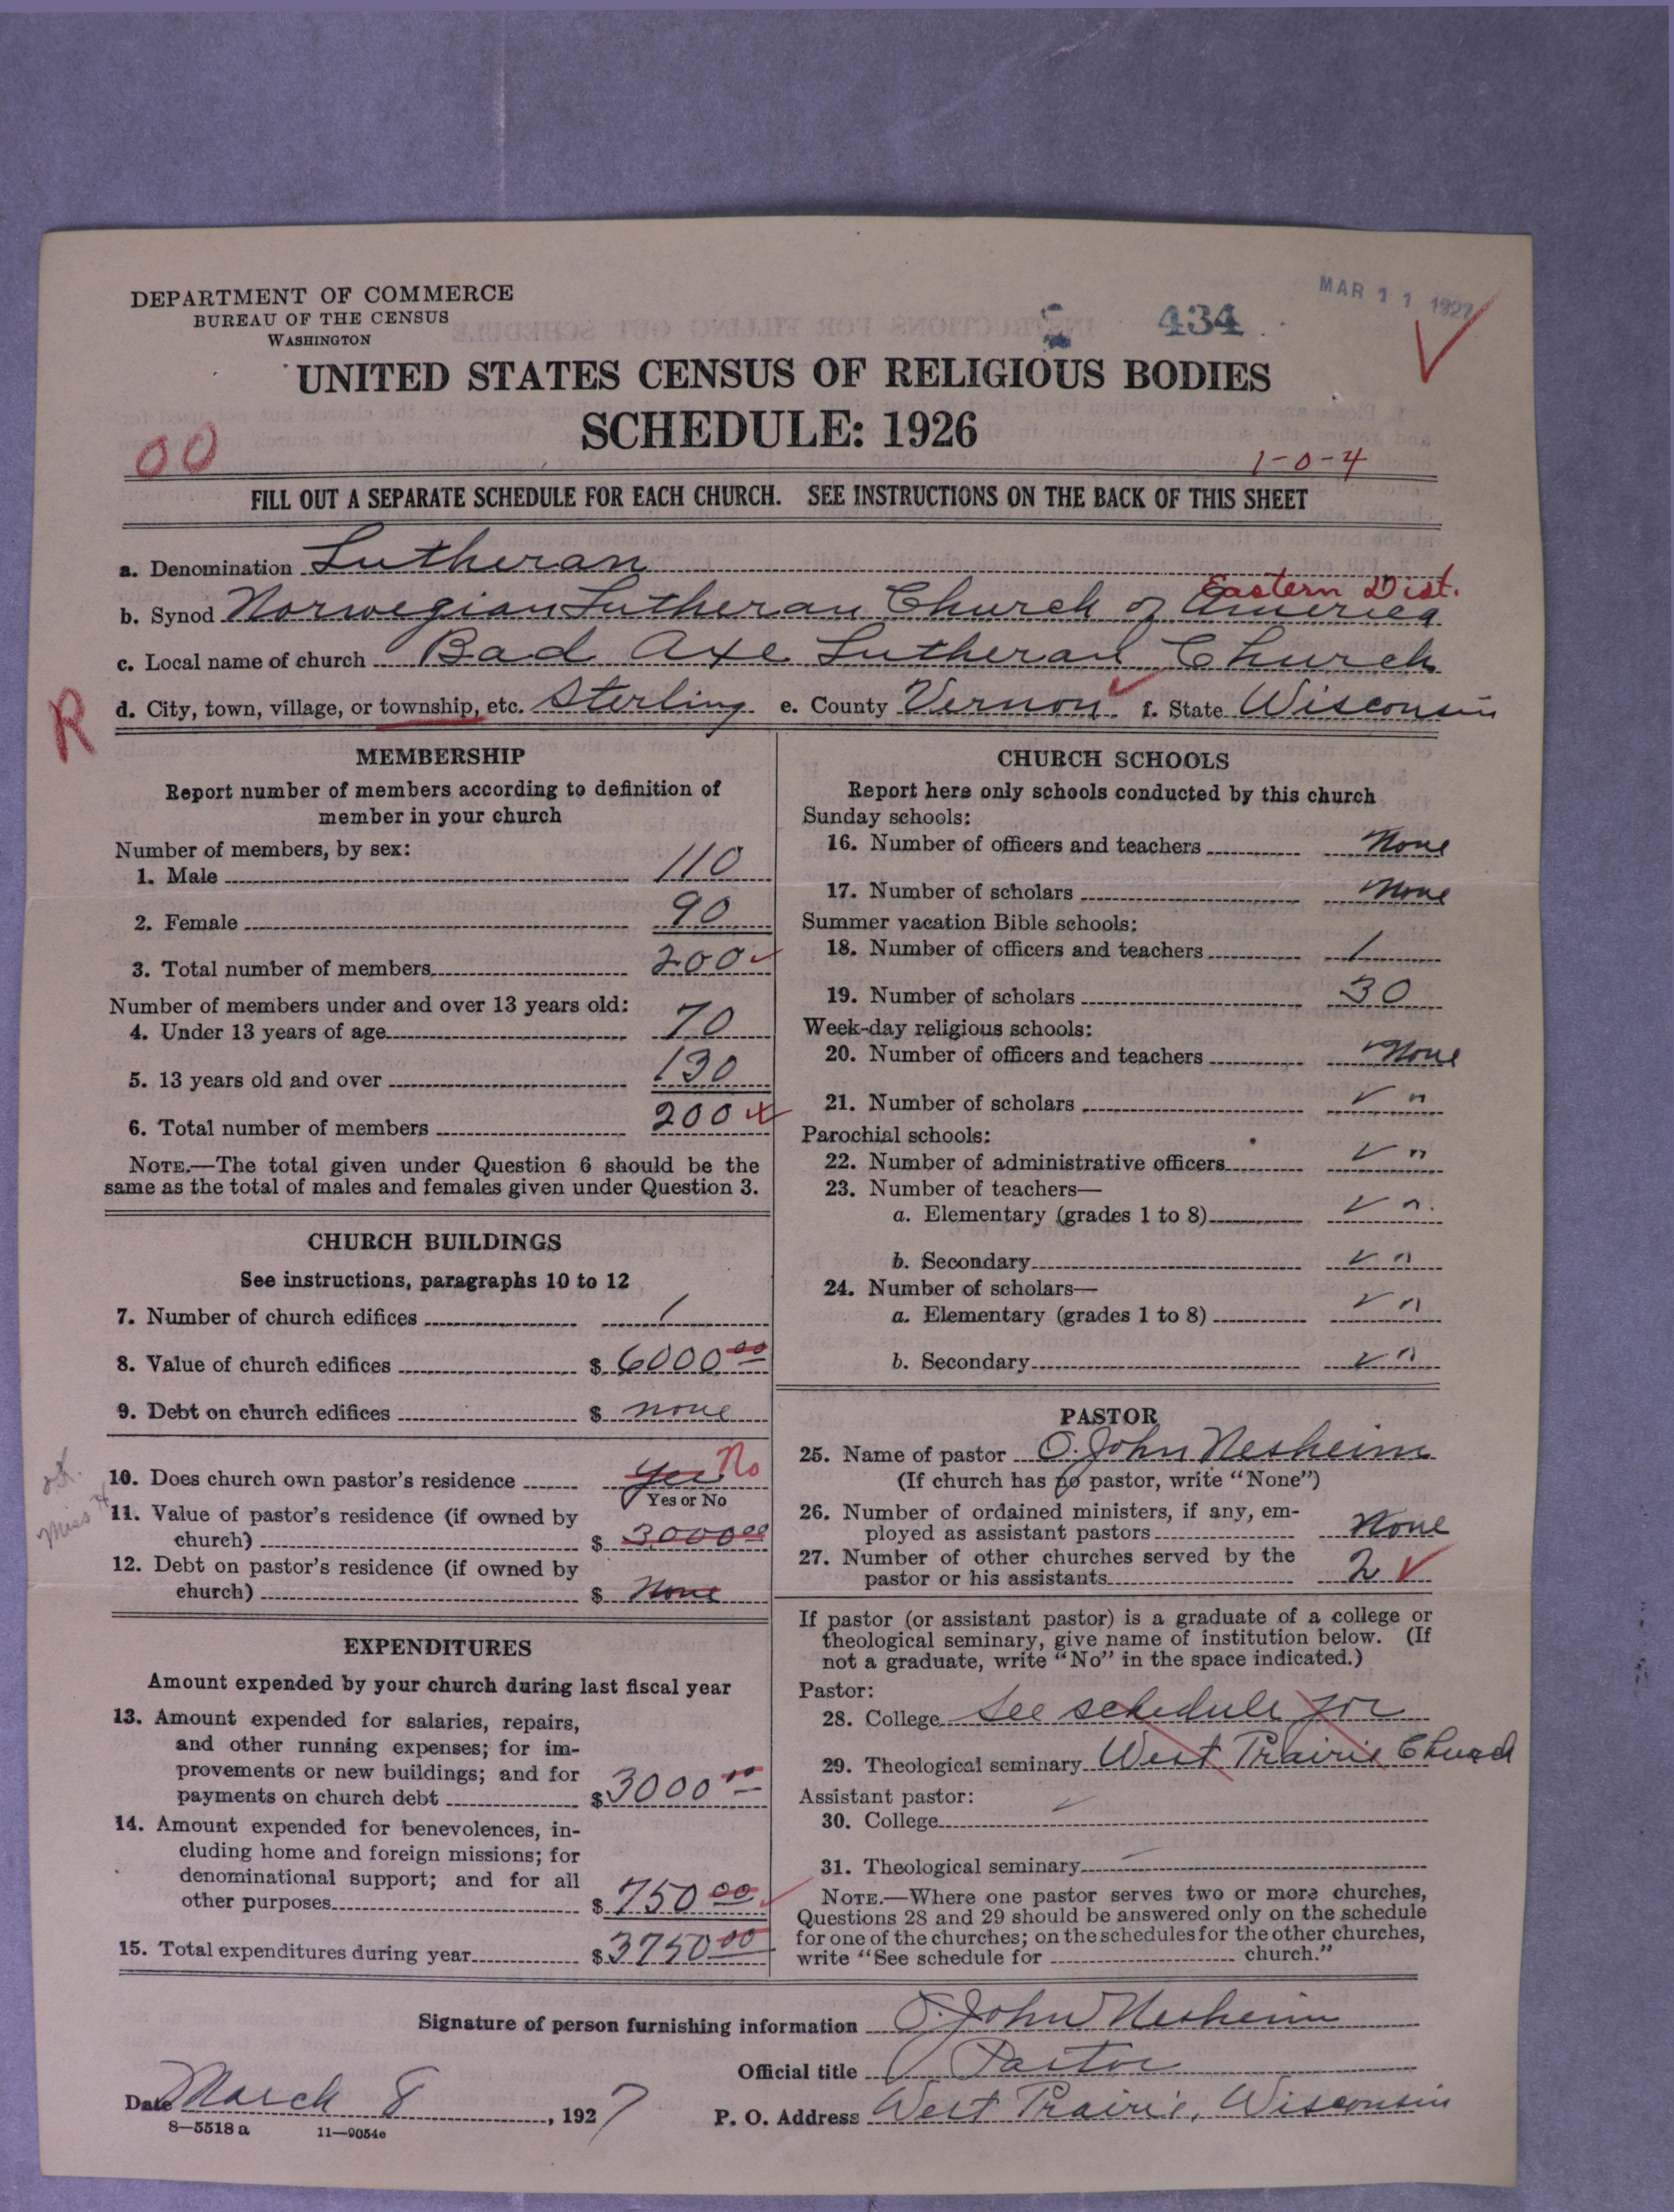 DEPARTMENT OF COMMERCE
BUREAU OF THE CENSUS
WASHINGTON
434
MAR 11 1927
UNITED STATES CENSUS OF RELIGIOUS BODIES
SCHEDULE: 1926
00
1-0-4
FILL OUT A SEPARATE SCHEDULE FOR EACH CHURCH. SEE INSTRUCTIONS ON THE BACK OF THIS SHEET
a. Denomination Lutheran
Eastern Dist.
b. Synod Norwegian Lutheran Church of America
c. Local name of church Bad Axe Lutheran Church
R
d. City, town, village, or township, etc. Sterling e. County Vernon f. State Wisconsin
MEMBERSHIP
Report number of members according to definition of
member in your church
Number of members, by sex:
1. Male 110
2. Female 90
3. Total number of members 200
Number of members under and over 13 years old:
4. Under 13 years of age 70
5. 13 years old and over 130
6. Total number of members 200
NOTE.—The total given under Question 6 should be the
same as the total of males and females given under Question 3.
CHURCH BUILDINGS
See instructions, paragraphs 10 to 12
7. Number of church edifices 1
8. Value of church edifices $ 6000 00
9. Debt on church edifices $ none
10. Does church own pastor's residence Yes No
Yes or No
11. Value of pastor's residence (if owned by
church) $ 3000 00
12. Debt on pastor's residence (if owned by
church) $ None
EXPENDITURES
Amount expended by your church during last fiscal year
13. Amount expended for salaries, repairs,
and other running expenses; for im-
provements or new buildings; and for
payments on church debt $ 3000 00
14. Amount expended for benevolences, in-
cluding home and foreign missions; for
denominational support; and for all
other purposes $ 750 00
15. Total expenditures during year $ 3750 00
CHURCH SCHOOLS
Report here only schools conducted by this church
Sunday schools:
16. Number of officers and teachers None
17. Number of scholars None
Summer vacation Bible schools:
18. Number of officers and teachers 1
19. Number of scholars 30
Week-day religious schools:
20. Number of officers and teachers None
21. Number of scholars "
Parochial schools:
22. Number of administrative officers "
23. Number of teachers—
a. Elementary (grades 1 to 8) "
b. Secondary "
24. Number of scholars—
a. Elementary (grades 1 to 8) "
b. Secondary "
PASTOR
25. Name of pastor O. John Nesheim
(If church has no pastor, write "None")
26. Number of ordained ministers, if any, em-
ployed as assistant pastors None
27. Number of other churches served by the
pastor or his assistants 2
If pastor (or assistant pastor) is a graduate of a college or
theological seminary, give name of institution below. (If
not a graduate, write "No" in the space indicated.)
Pastor:
28. College See schedule for
29. Theological seminary West Prairie Church
Assistant pastor:
30. College
31. Theological seminary
NOTE.—Where one pastor serves two or more churches,
Questions 28 and 29 should be answered only on the schedule
for one of the churches; on the schedules for the other churches,
write "See schedule for church."
Signature of person furnishing information O. John Nesheim
Official title Pastor
Date March 8, 1927
P. O. Address West Prairie, Wisconsin
8—5518 a 11—9054c